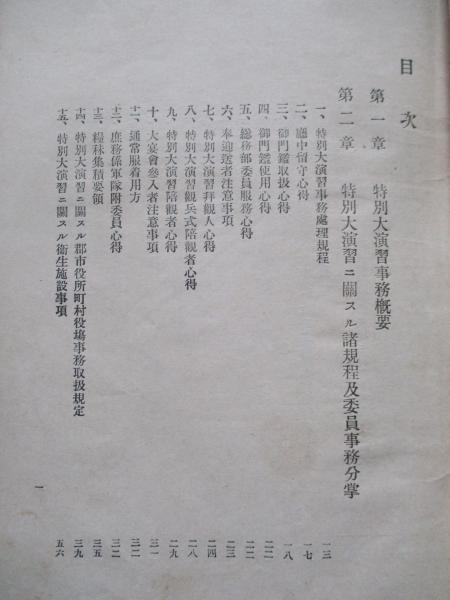 目次
第一章 特別大演習事務概要
第二章 特別大演習ニ關スル諸規程及委員事務分掌
一、特別大演習事務處理規程 一三
二、廳中留守心得 一七
三、御門鑑取扱心得 一八
四、御門鑑使用心得 二二
五、総務部委員服務心得 二二
六、奉迎送者注意事項 二三
七、特別大演習拜觀人心得 二四
八、特別大演習觀兵式陪觀者心得 二八
九、特別大演習陪觀者心得 二九
十、大宴會參入者注意事項 三一
十一、通常服着用方 三二
十二、庶務係軍隊附委員心得 三二
十三、糧秣集積要領 三五
十四、特別大演習ニ關スル郡市役所町村役塲事務取扱規定 三九
十五、特別大演習ニ關スル衛生施設事項 五六
一